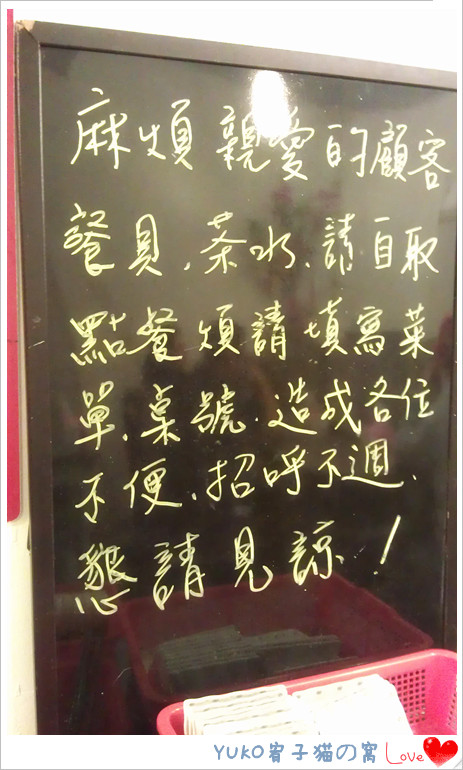 麻煩親愛的顧客
餐具、茶水、請自取
點餐煩請填寫菜
單、桌號、造成各位
不便、招呼不週、
懇請見諒！
YUKO宥子猫の窩 Love